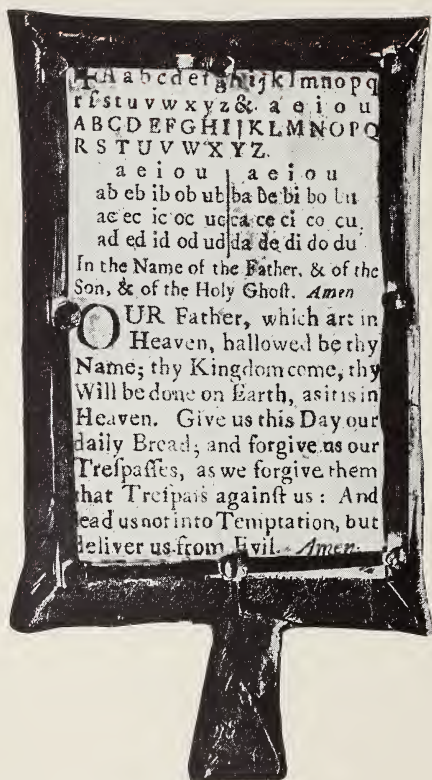 ✠ A a b c d e f g h i j k l m n o p q
r ſ s t u v w x y z &. a e i o u
A B C D E F G H I J K L M N O P Q
R S T U V W X Y Z.
a e i o u | a e i o u
ab eb ib ob ub | ba be bi bo bu
ac ec ic oc uc | ca ce ci co cu
ad ed id od ud | da de di do du
In the Name of the Father, & of the
Son, & of the Holy Ghoſt. Amen
OUR Father, which art in
Heaven, hallowed be thy
Name; thy Kingdom come, thy
Will be done on Earth, as it is in
Heaven. Give us this Day our
daily Bread; and forgive us our
Treſpaſſes, as we forgive them
that Treſpaſs againſt us: And
lead us not into Temptation, but
deliver us from Evil. Amen.